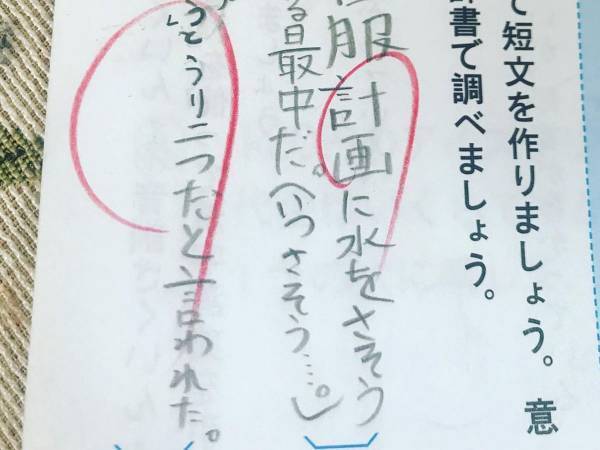 て短文を作りましょう。 意
辞書で調べましょう。
服計画に水をさそう
る最中だ。(いつさそう…。)
うりニつだと言われた。